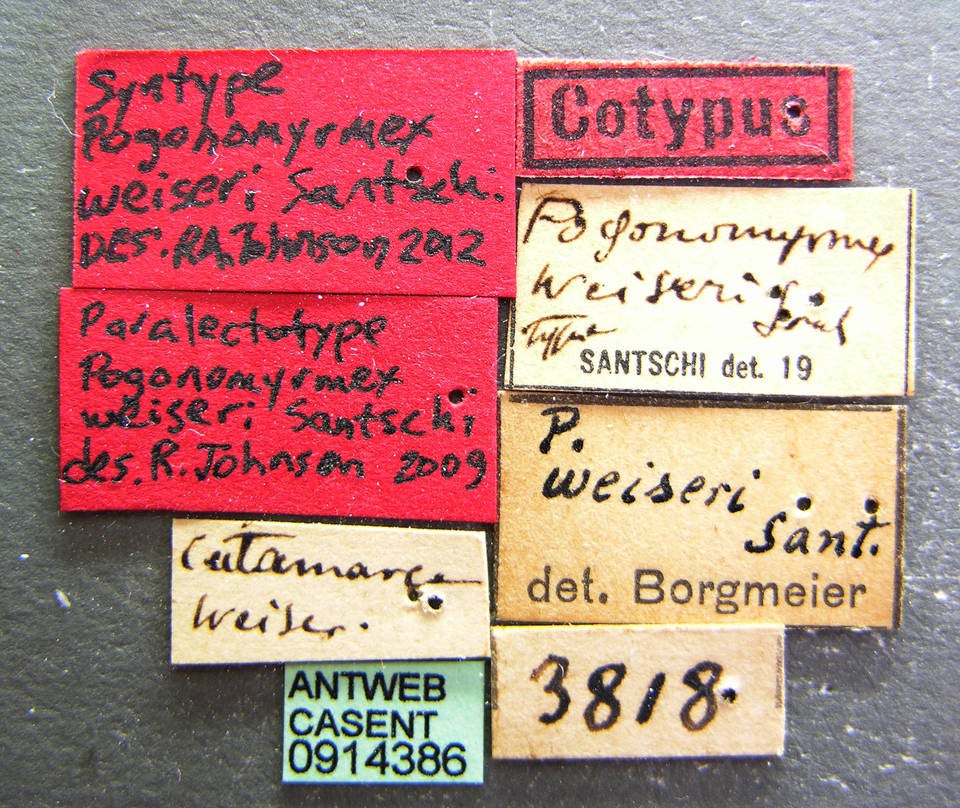 Syntype
Pogonomyrmex
weiseri Santschi.
DES. RA. Johnson 2012
Cotypus
Pogonomyrmex
weiseri
Type
SANTSCHI det. 19
Paralectotype
Pogonomyrmex
weiseri Santschi
des. R. Johnson 2009
P.
weiseri
Sant.
det. Borgmeier
Catamarca
Weiser.
3818.
ANTWEB
CASENT
0914386